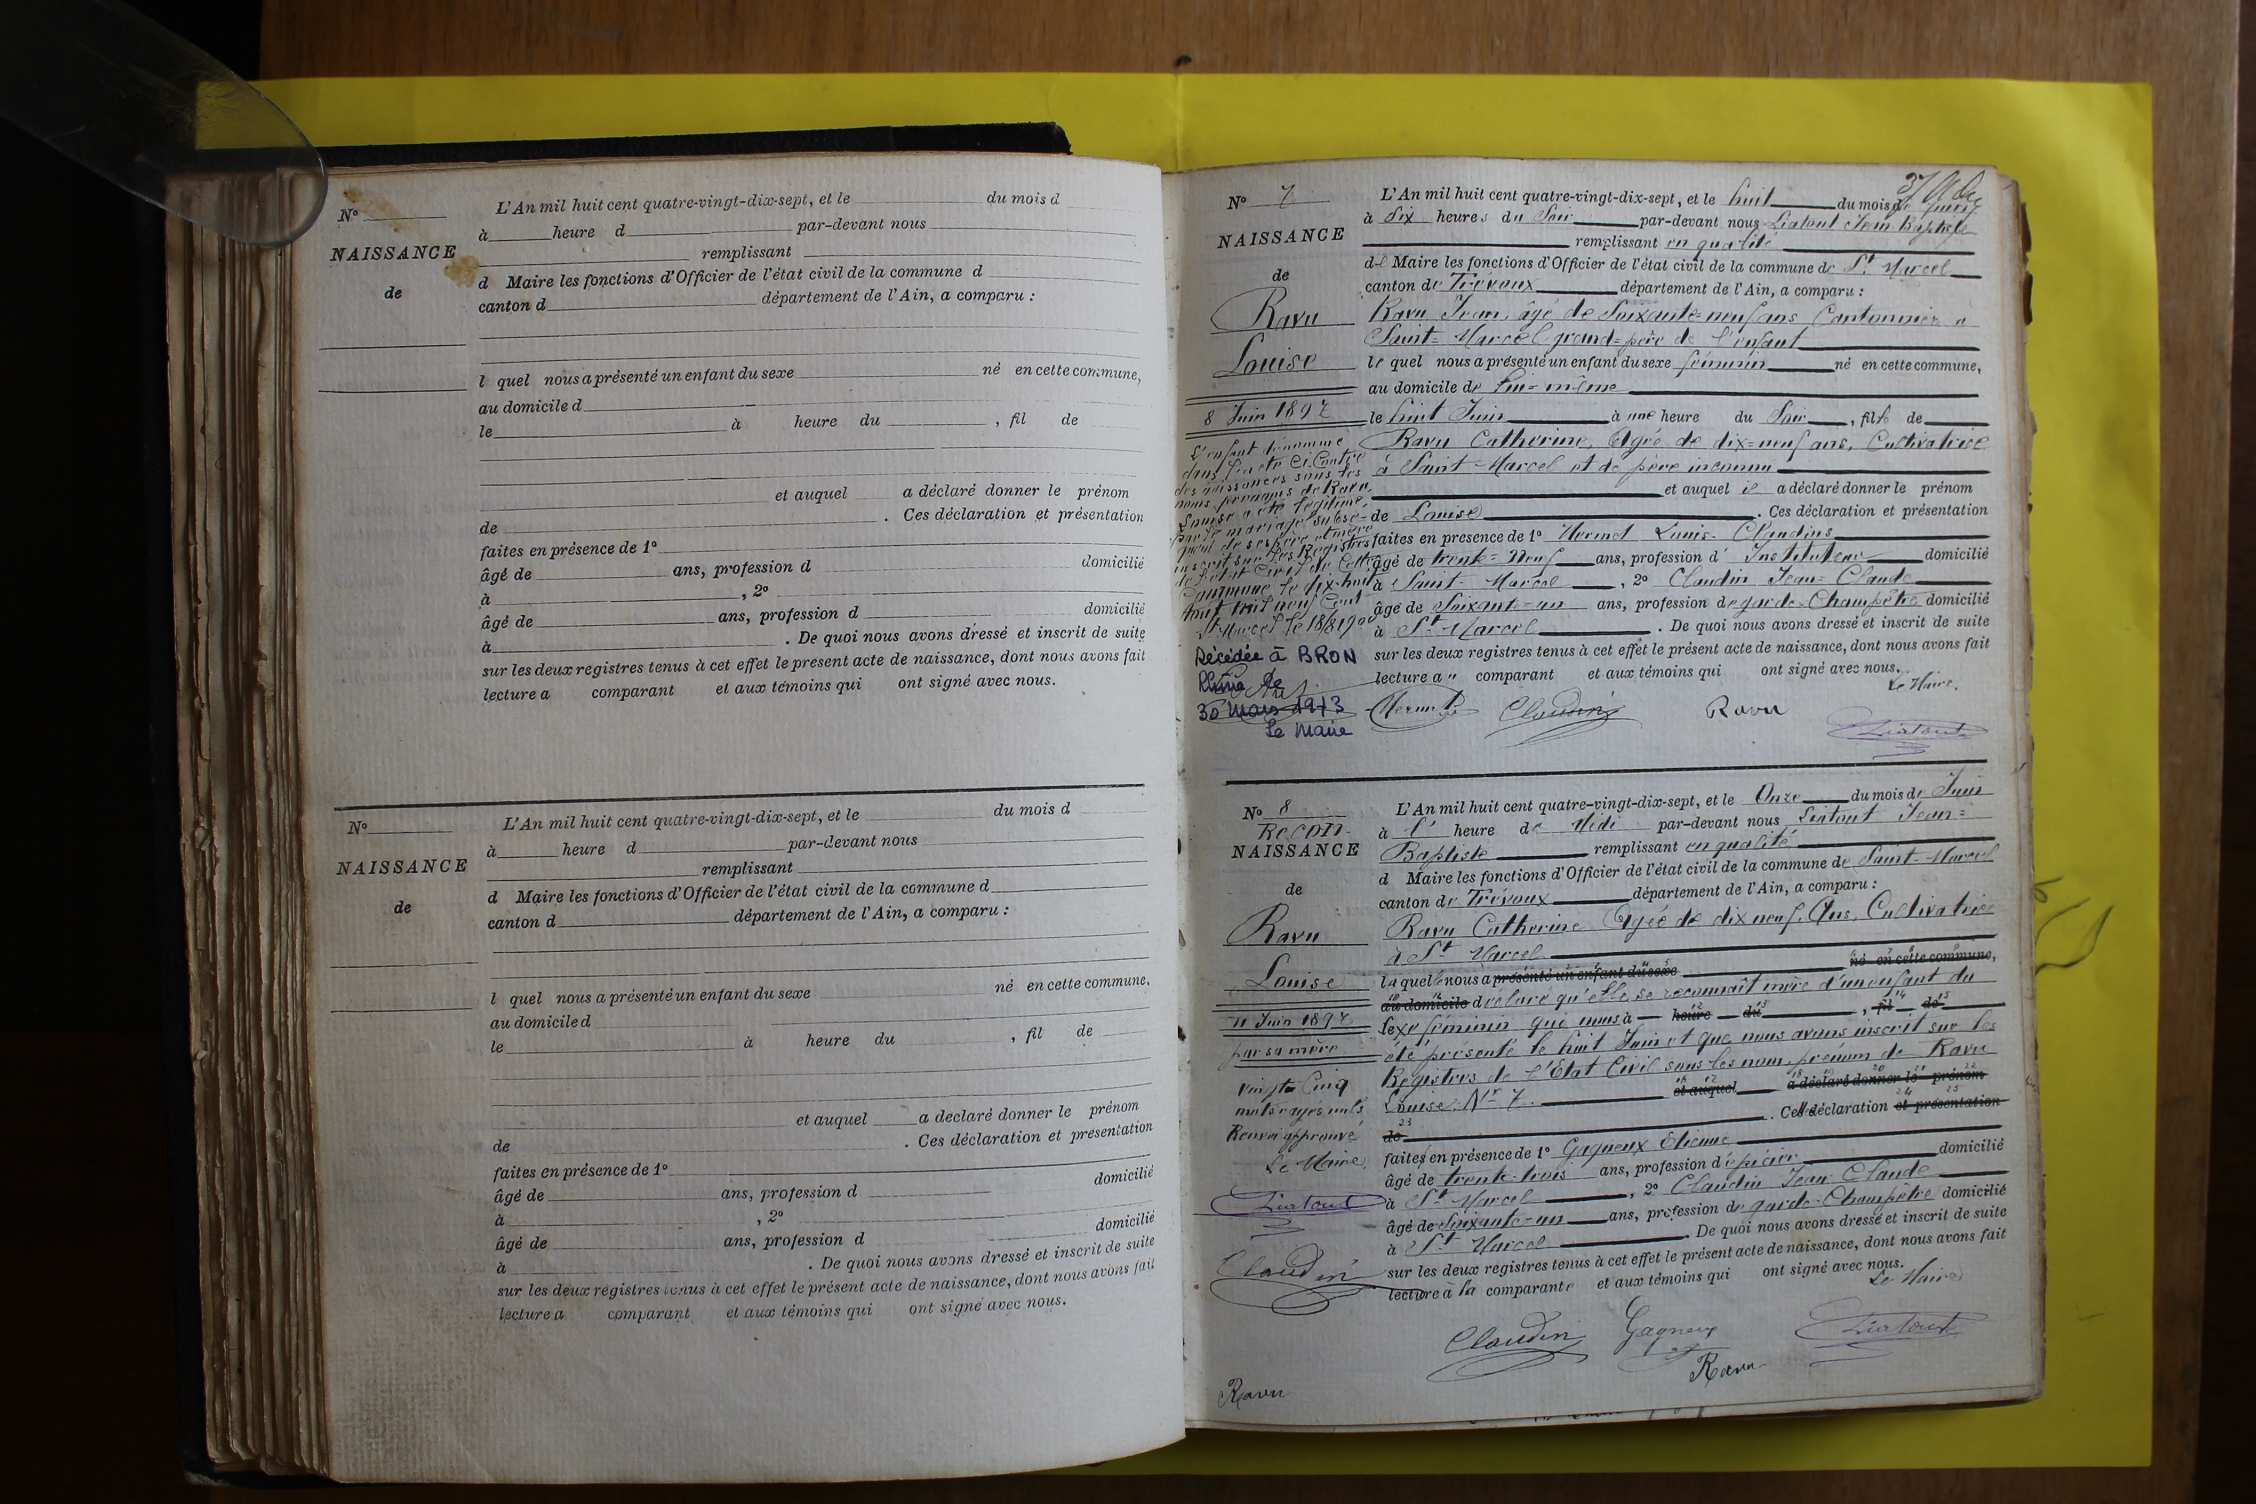 N°
NAISSANCE
de
L'An mil huit cent quatre-vingt-dix-sept, et le du mois d
à heure d par-devant nous
remplissant
d Maire les fonctions d'Officier de l'état civil de la commune d
canton d département de l'Ain, a comparu :
l quel nous a présenté un enfant du sexe né en cette commune,
au domicile d
le à heure du , fil de
et auquel a déclaré donner le prénom
de . Ces déclaration et présentation
faites en présence de 1°
âgé de ans, profession d domicilié
à , 2°
âgé de ans, profession d domicilié
à . De quoi nous avons dressé et inscrit de suite
sur les deux registres tenus à cet effet le present acte de naissance, dont nous avons fait
lecture a comparant et aux témoins qui ont signé avec nous.
N°
NAISSANCE
de
L'An mil huit cent quatre-vingt-dix-sept, et le du mois d
à heure d par-devant nous
remplissant
d Maire les fonctions d'Officier de l'état civil de la commune d
canton d département de l'Ain, a comparu :
l quel nous a présenté un enfant du sexe né en cette commune.
au domicile d
le à heure du , fil de
et auquel a declaré donner le prénom
de . Ces déclaration et présentation
faites en présence de 1°
âgé de ans, profession d domicilié
à , 2°
âgé de ans, profession d domicilié
à . De quoi nous avons dressé et inscrit de suite
sur les deux registres tenus à cet effet le présent acte de naissance, dont nous avons fait
lecture a comparant et aux témoins qui ont signé avec nous.
N° 7
NAISSANCE
de
Ravu
Louise
8 Juin 1897
L'enfant dénommé
dans l'acte Ci-Contre
des naissances sous les
noms prénoms de Ravu
Louise a été légitimé
par le mariage subsé-
quent de ses père et mère
inscrit sur les Registres
de l'état Civil de Cette
Commune le dix-huit
Août mil neuf Cent
St Marcel le 18/8 1900
Décédée à BRON
Rhône le
30 Mars 1973
Le Maire
L'An mil huit cent quatre-vingt-dix-sept, et le huit du mois de Juin
à Six heures du Soir par-devant nous Liatout Jean-Baptiste
remplissant en qualité
de Maire les fonctions d'Officier de l'état civil de la commune de St Marcel
canton de Trévoux département de l'Ain, a comparu :
Ravu Jean, âgé de Soixante-neuf ans Cantonnier à
Saint-Marcel grand-père de l'enfant
le quel nous a présenté un enfant du sexe féminin né en cette commune,
au domicile de lui-même
le huit Juin à une heure du Soir, fille de
Ravu Catherine, Agée de dix-neuf ans, Cultivatrice
à Saint-Marcel et de père inconnu
et auquel il a déclaré donner le prénom
de Louise . Ces déclaration et présentation
faites en presence de 1° Mermet Louis-Claudius
âgé de trente-neuf ans, profession d' Instituteur domicilié
à Saint-Marcel , 2° Claudin Jean-Claude
âgé de Soixante-un ans, profession de garde-Champêtre domicilié
à St Marcel . De quoi nous avons dressé et inscrit de suite
sur les deux registres tenus à cet effet le présent acte de naissance, dont nous avons fait
lecture a " comparant et aux témoins qui ont signé avec nous.
Le Maire.
Mermet Claudin Ravu Liatout
N° 8
Recon.
NAISSANCE
de
Ravu
Louise
11 Juin 1897
par sa mère
vingt-Cinq
mots rayés nuls
Renvoi approuvé
Le Maire
Liatout
Claudin
Ravu
L'An mil huit cent quatre-vingt-dix-sept, et le Onze du mois de Juin
à l' heure de Midi par-devant nous Liatout Jean-
Baptiste remplissant en qualité
d Maire les fonctions d'Officier de l'état civil de la commune de Saint-Marcel
canton de Trévoux département de l'Ain, a comparu :
Ravu Catherine Agée de dix neuf Ans, Cultivatrice
à St Marcel
laquelle nous a présenté un enfant du sexe né en cette commune,
au domicile declaré qu'elle se reconnait mère d'un enfant du
Sexe féminin que nous à heure du , fil de
été présenté le huit Juin et que nous avons inscrit sur les
Registres de l'Etat Civil sous les nom, prénom de Ravu
Louise N° 7. et auquel a déclaré donner le prénom
de . Cette déclaration et présentation
faites en présence de 1° Gagneux Etienne
âgé de trente-trois ans, profession d'épicier domicilié
à St Marcel , 2° Claudin Jean Claude
âgé de Soixante-un ans, profession de garde-Champêtre domicilié
à St Marcel . De quoi nous avons dressé et inscrit de suite
sur les deux registres tenus à cet effet le présent acte de naissance, dont nous avons fait
lecture à la comparante et aux témoins qui ont signé avec nous.
Le Maire
Claudin Gagneux Liatout
Ravu